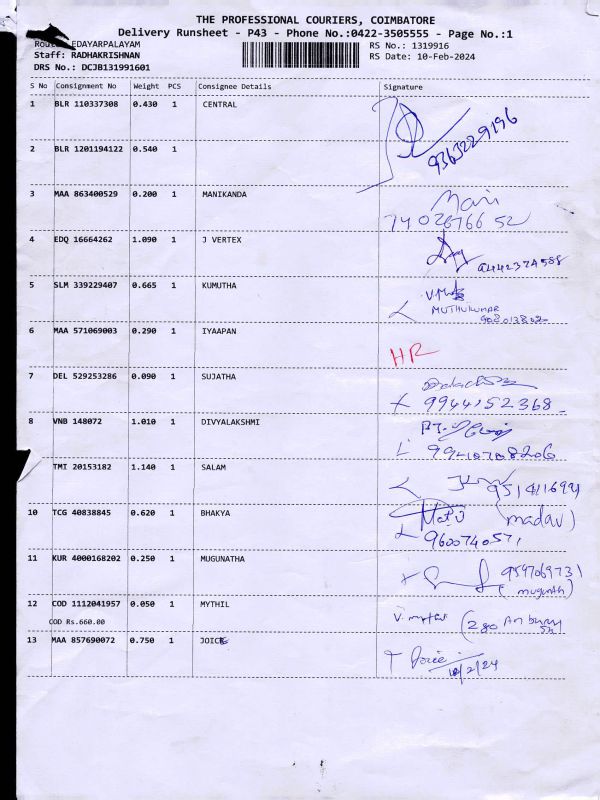 THE PROFESSIONAL COURIERS, COIMBATORE
Delivery Runsheet - P43 - Phone No.:0422-3505555 - Page No.:1
EDAYARPALAYAM RS No.: 1319916
Staff: RADHAKRISHNAN RS Date: 10-Feb-2024
DRS No.: DCJB131991601
S No Consignment No Weight PCS Consignee Details Signature
1 BLR 110337308 0.430 1 CENTRAL
9363229196
2 BLR 1201194122 0.540 1
3 MAA 863400529 0.200 1 MANIKANDA Mani
7402676652
4 EDQ 16664262 1.090 1 J VERTEX
9442374588
5 SLM 339229407 0.665 1 KUMUTHA
MUTHUKUMAR
6 MAA 571069003 0.290 1 IYAAPAN
HR
7 DEL 529253286 0.090 1 SUJATHA
9944152368
8 VNB 148072 1.010 1 DIVYALAKSHMI
TMI 20153182 1.140 1 SALAM
10 TCG 40838845 0.620 1 BHAKYA (madav)
9600740571
11 KUR 4000168202 0.250 1 MUGUNATHA
(mugunth)
12 COD 1112041957 0.050 1 MYTHIL
COD Rs.660.00
13 MAA 857690072 0.750 1 JOICE